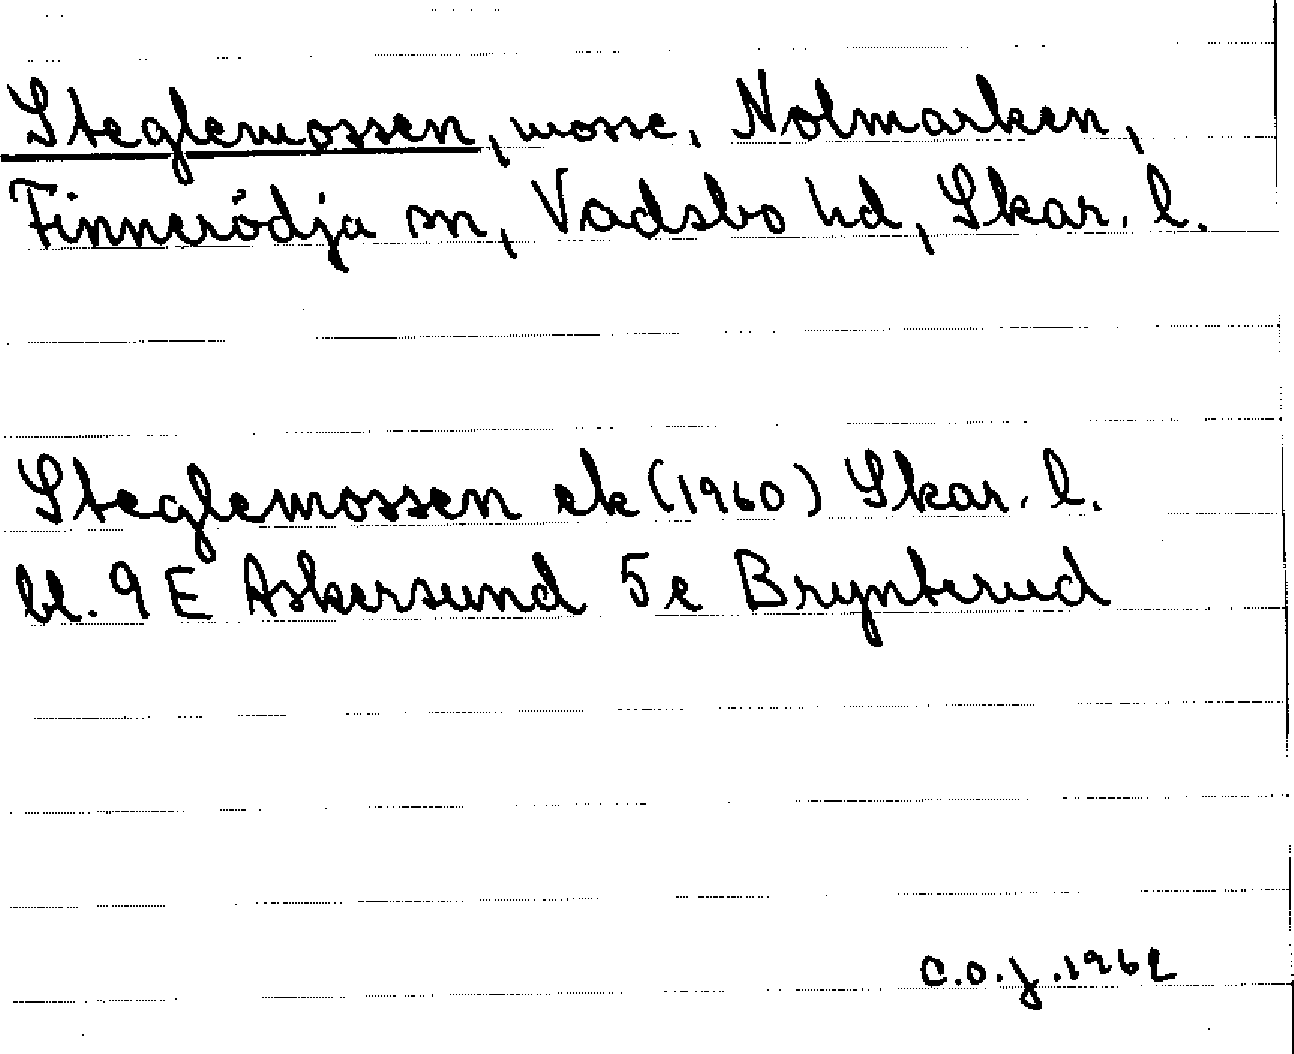 Steglemossen, mosse, Nolmarken,
Finnerödja sn, Vadsbo hd, Skar. l.
Steglemossen ek (1960) Skar. l.
bl. 9 E Askersund 5e Brynterud
C.O.J. 1962